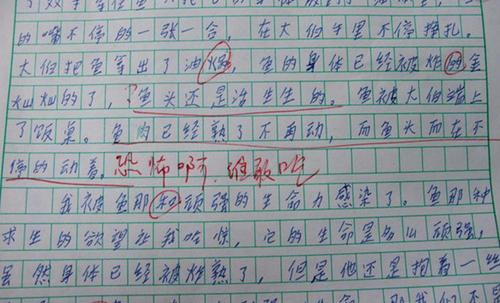 的嘴不停的一张一合，在大伯手里不停挣扎。
大伯把鱼等出了油锅，鱼的身体已经被炸的金
灿灿的了，?鱼头还是活生生的。鱼被大伯端上
了饭桌。鱼肉已经熟了不再动，而鱼头而在不
停的动着。恐怖啊，谁敢吃
我被鱼那和顽强的生命力感染了。鱼那种
求生的欲望让我吃惊，它的生命是多么顽强，
虽然身体已经被炸熟了，但是他还是抱着一丝